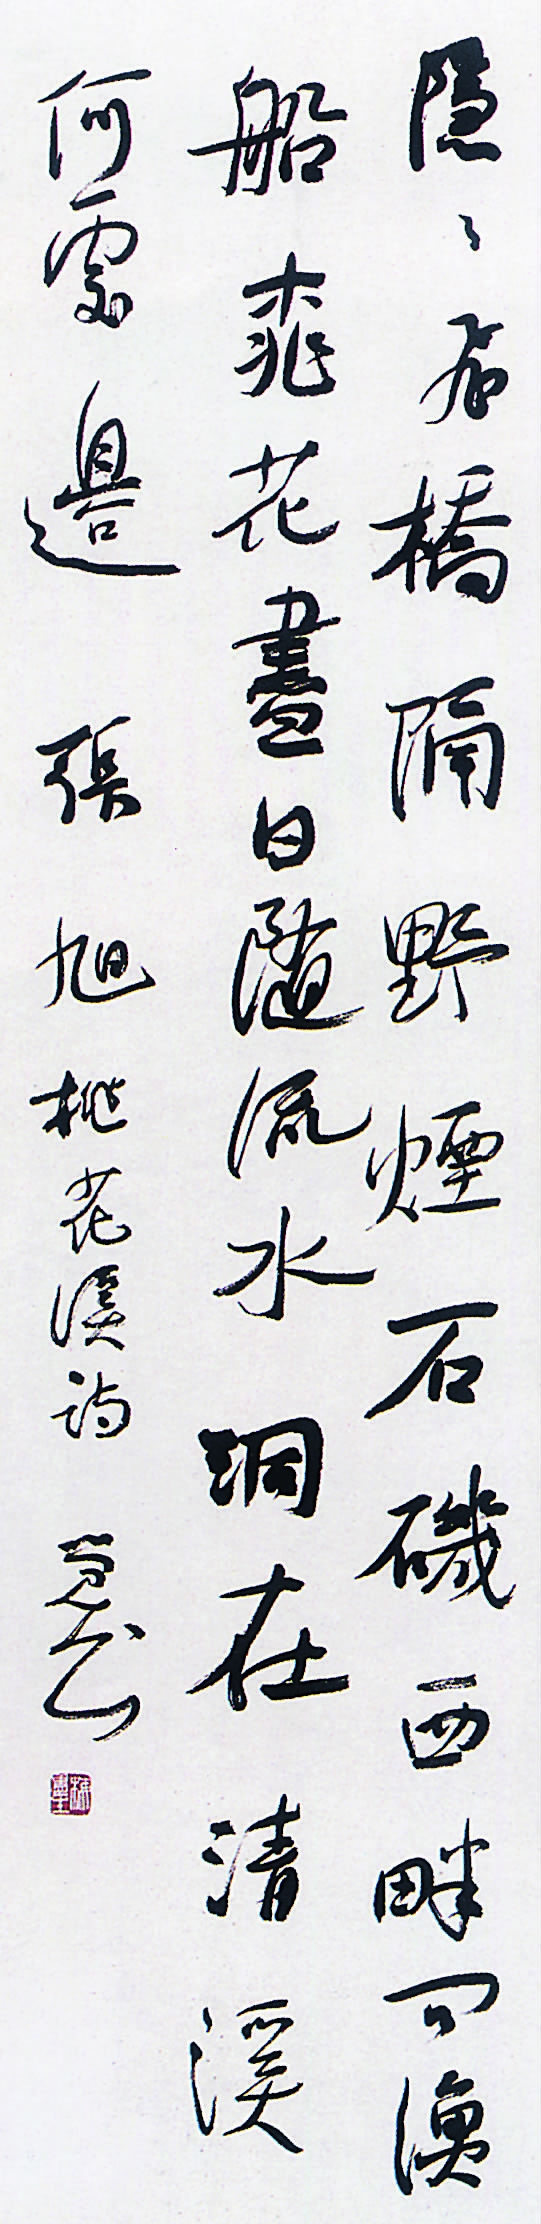 隱々飛橋隔野煙石磯西畔問漁
船桃花盡日隨流水洞在清溪
何處邊 張旭桃花溪詩